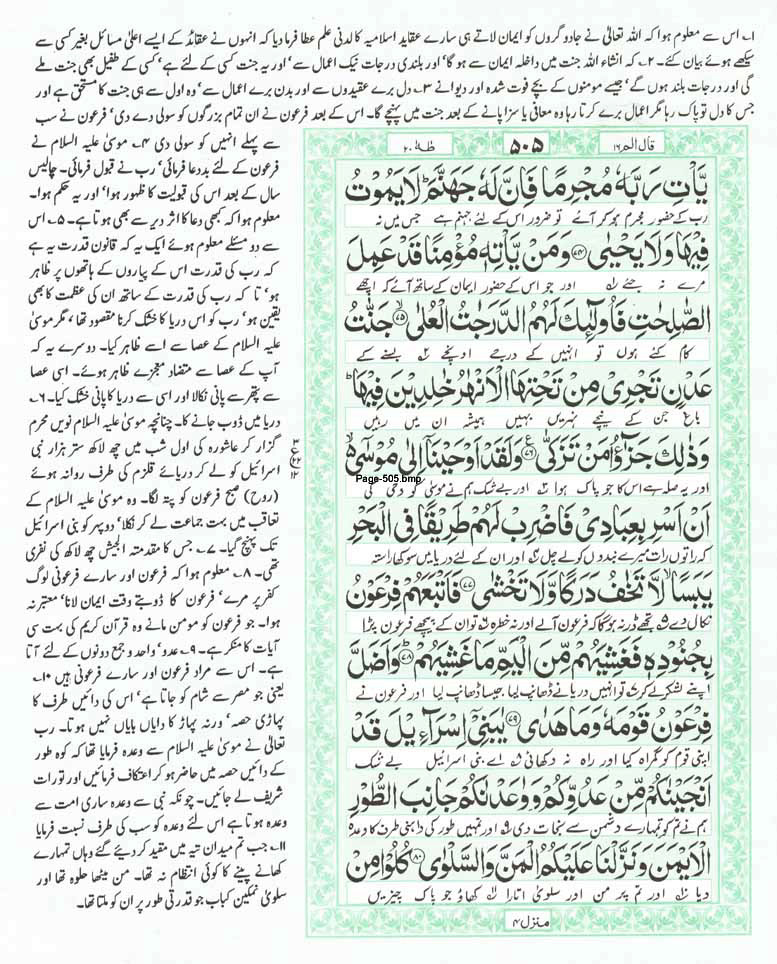 ۱۔ اس سے معلوم ہوا کہ اللہ تعالیٰ نے جادوگروں کو ایمان لاتے ہی سارے عقاید اسلامیہ کا لدنی علم عطا فرما دیا کہ انہوں نے عقائد کے ایسے اعلیٰ مسائل بغیر کسی سے
سیکھے ہوئے بیان کئے۔ ۲۔ کہ انشاء اللہ جنت میں داخلہ ایمان سے ہو گا' اور بلندی درجات نیک اعمال سے' اور یہ جنت کسی کے لئے ہے' کسی کے طفیل بھی جنت ملے
گی اور درجات بلند ہوں گے' جیسے مومنوں کے بچے فوت شدہ اور دیوانے ۳۔ دل برے عقیدوں سے اور بدن برے اعمال سے' وہ اول سے ہی جنت کا مستحق ہے اور
جس کا دل تو پاک رہا مگر اعمال برے کرتا رہا وہ معافی یا سزا پانے کے بعد جنت میں پہنچے گا۔ اس کے بعد فرعون نے ان تمام بزرگوں کو سولی دے دی' فرعون نے سب
سے پہلے انہیں کو سولی دی ۴۔ موسیٰ علیہ السلام نے
فرعون کے لئے بددعا فرمائی' رب نے قبول فرمائی۔ چالیس
سال کے بعد اس کی قبولیت کا ظہور ہوا' اور یہ حکم ہوا۔
معلوم ہوا کہ کبھی دعا کا اثر دیر سے بھی ہوتا ہے۔ ۵۔ اس
سے دو مسئلے معلوم ہوئے ایک یہ کہ قانون قدرت یہ ہے
کہ رب کی قدرت اس کے پیاروں کے ہاتھوں پر ظاہر
ہو' تا کہ رب کی قدرت کے ساتھ ان کی عظمت کا بھی
یقین ہو' رب کو اس دریا کا خشک کرنا مقصود تھا' مگر موسیٰ
علیہ السلام کے عصا سے اسے ظاہر کیا۔ دوسرے یہ کہ
آپ کے عصا سے متضاد معجزے ظاہر ہوئے۔ اسی عصا
سے پتھر سے پانی نکالا اور اسی سے دریا کا پانی خشک کیا۔ ۶۔
دریا میں ڈوب جانے کا۔ چنانچہ موسیٰ علیہ السلام نویں محرم
گزار کر عاشورہ کی اول شب میں چھ لاکھ ستر ہزار نبی
اسرائیل کو لے کر دریائے قلزم کی طرف روانہ ہوئے
(روح) صبح فرعون کو پتہ لگا۔ وہ موسیٰ علیہ السلام کے
تعاقب میں بہت جماعت لے کر نکلا' دوپہر کو بنی اسرائیل
تک پہنچ گیا۔ ۷۔ جس کا مقدمتہ الجیش چھ لاکھ کی نفری
تھی۔ ۸۔ معلوم ہوا کہ فرعون اور سارے فرعونی لوگ
کفر پر مرے' فرعون کا ڈوبتے وقت ایمان لانا' معتبر نہ
ہوا۔ جو فرعون کو مومن مانے وہ قرآن کریم کی بہت سی
آیات کا منکر ہے۔ ۹۔ عدو' واحد و جمع دونوں کے لئے آتا
ہے۔ اس سے مراد فرعون اور سارے فرعونی ہیں ۱۰۔
یعنی جو مصر سے شام کو جاتا ہے' اس کی دائیں طرف کا
پہاڑی حصہ' ورنہ پہاڑ کا دایاں بایاں نہیں ہوتا۔ رب
تعالیٰ نے موسیٰ علیہ السلام سے وعدہ فرمایا تھا کہ کوہ طور
کے دائیں حصہ میں حاضر ہو کر اعتکاف فرمائیں اور تورات
شریف لے جائیں۔ چونکہ نبی سے وعدہ ساری امت سے
وعدہ ہوتا ہے اس لئے وعدہ کو سب کی طرف نسبت فرمایا
۱۱۔ جب تم میدان تیہ میں مقید کر دیئے گئے وہاں تمہارے
کھانے پینے کا کوئی انتظام نہ تھا۔ من میٹھا حلوہ تھا اور
سلویٰ نمکین کباب جو قدرتی طور پر ان کو ملتا تھا۔
قال الم ۱۶ ۵۰۵ طٰہٰ ۲۰
يَّاْتِ رَبَّهٗ مُجْرِمًا فَاِنَّ لَهٗ جَهَنَّمَ ؕ لَا يَمُوْتُ
رب کے حضور مجرم ہو کر آئے تو ضرور اس کے لئے جہنم ہے جس میں نہ
فِيْهَا وَلَا يَحْيٰى ﴿۷۴﴾ وَمَنْ يَّاْتِهٖ مُؤْمِنًا قَدْ عَمِلَ
مرے نہ جئے اور جو اس کے حضور ایمان کے ساتھ آئے کہ اچھے
الصّٰلِحٰتِ فَاُولٰٓئِكَ لَهُمُ الدَّرَجٰتُ الْعُلٰى ﴿۷۵﴾ جَنّٰتُ
کام کئے ہوں تو انہیں کے درجے اونچے بسنے کے
عَدْنٍ تَجْرِيْ مِنْ تَحْتِهَا الْاَنْهٰرُ خٰلِدِيْنَ فِيْهَا ؕ
باغ جن کے نیچے نہریں بہیں ہمیشہ ان میں رہیں
وَذٰلِكَ جَزٰٓؤُا مَنْ تَزَكّٰى ﴿۷۶﴾ وَلَقَدْ اَوْحَيْنَآ اِلٰى مُوْسٰٓى
Page-505.bmp
اور یہ صلہ ہے اس کا جو پاک ہوا اور بے شک ہم نے موسیٰ کو وحی کی
اَنْ اَسْرِ بِعِبَادِيْ فَاضْرِبْ لَهُمْ طَرِيْقًا فِي الْبَحْرِ
کہ راتوں رات میرے بندوں کو لے چل اور ان کے لئے دریا میں سوکھا راستہ
يَبَسًا ۙ لَّا تَخٰفُ دَرَكًا وَّلَا تَخْشٰى ﴿۷۷﴾ فَاَتْبَعَهُمْ فِرْعَوْنُ
نکال دے تجھے ڈر نہ ہوگا کہ فرعون آلے اور نہ خطرہ تو ان کے پیچھے فرعون پڑا
بِجُنُوْدِهٖ فَغَشِيَهُمْ مِّنَ الْيَمِّ مَا غَشِيَهُمْ ﴿۷۸﴾ وَاَضَلَّ
اپنے لشکر لے کر تو انہیں دریا نے ڈھانپ لیا جیسا ڈھانپ لیا اور فرعون نے
فِرْعَوْنُ قَوْمَهٗ وَمَا هَدٰى ﴿۷۹﴾ يٰبَنِيْٓ اِسْرَآءِيْلَ قَدْ
اپنی قوم کو گمراہ کیا اور راہ نہ دکھائی اے بنی اسرائیل بے شک
اَنْجَيْنٰكُمْ مِّنْ عَدُوِّكُمْ وَوٰعَدْنٰكُمْ جَانِبَ الطُّوْرِ
ہم نے تم کو تمہارے دشمن سے نجات دی اور تمہیں طور کی داہنی طرف کا وعدہ
الْاَيْمَنَ وَنَزَّلْنَا عَلَيْكُمُ الْمَنَّ وَالسَّلْوٰى ﴿۸۰﴾ كُلُوْا مِنْ
دیا اور تم پر من اور سلویٰ اتارا کھاؤ جو پاک چیزیں
منزل ۴